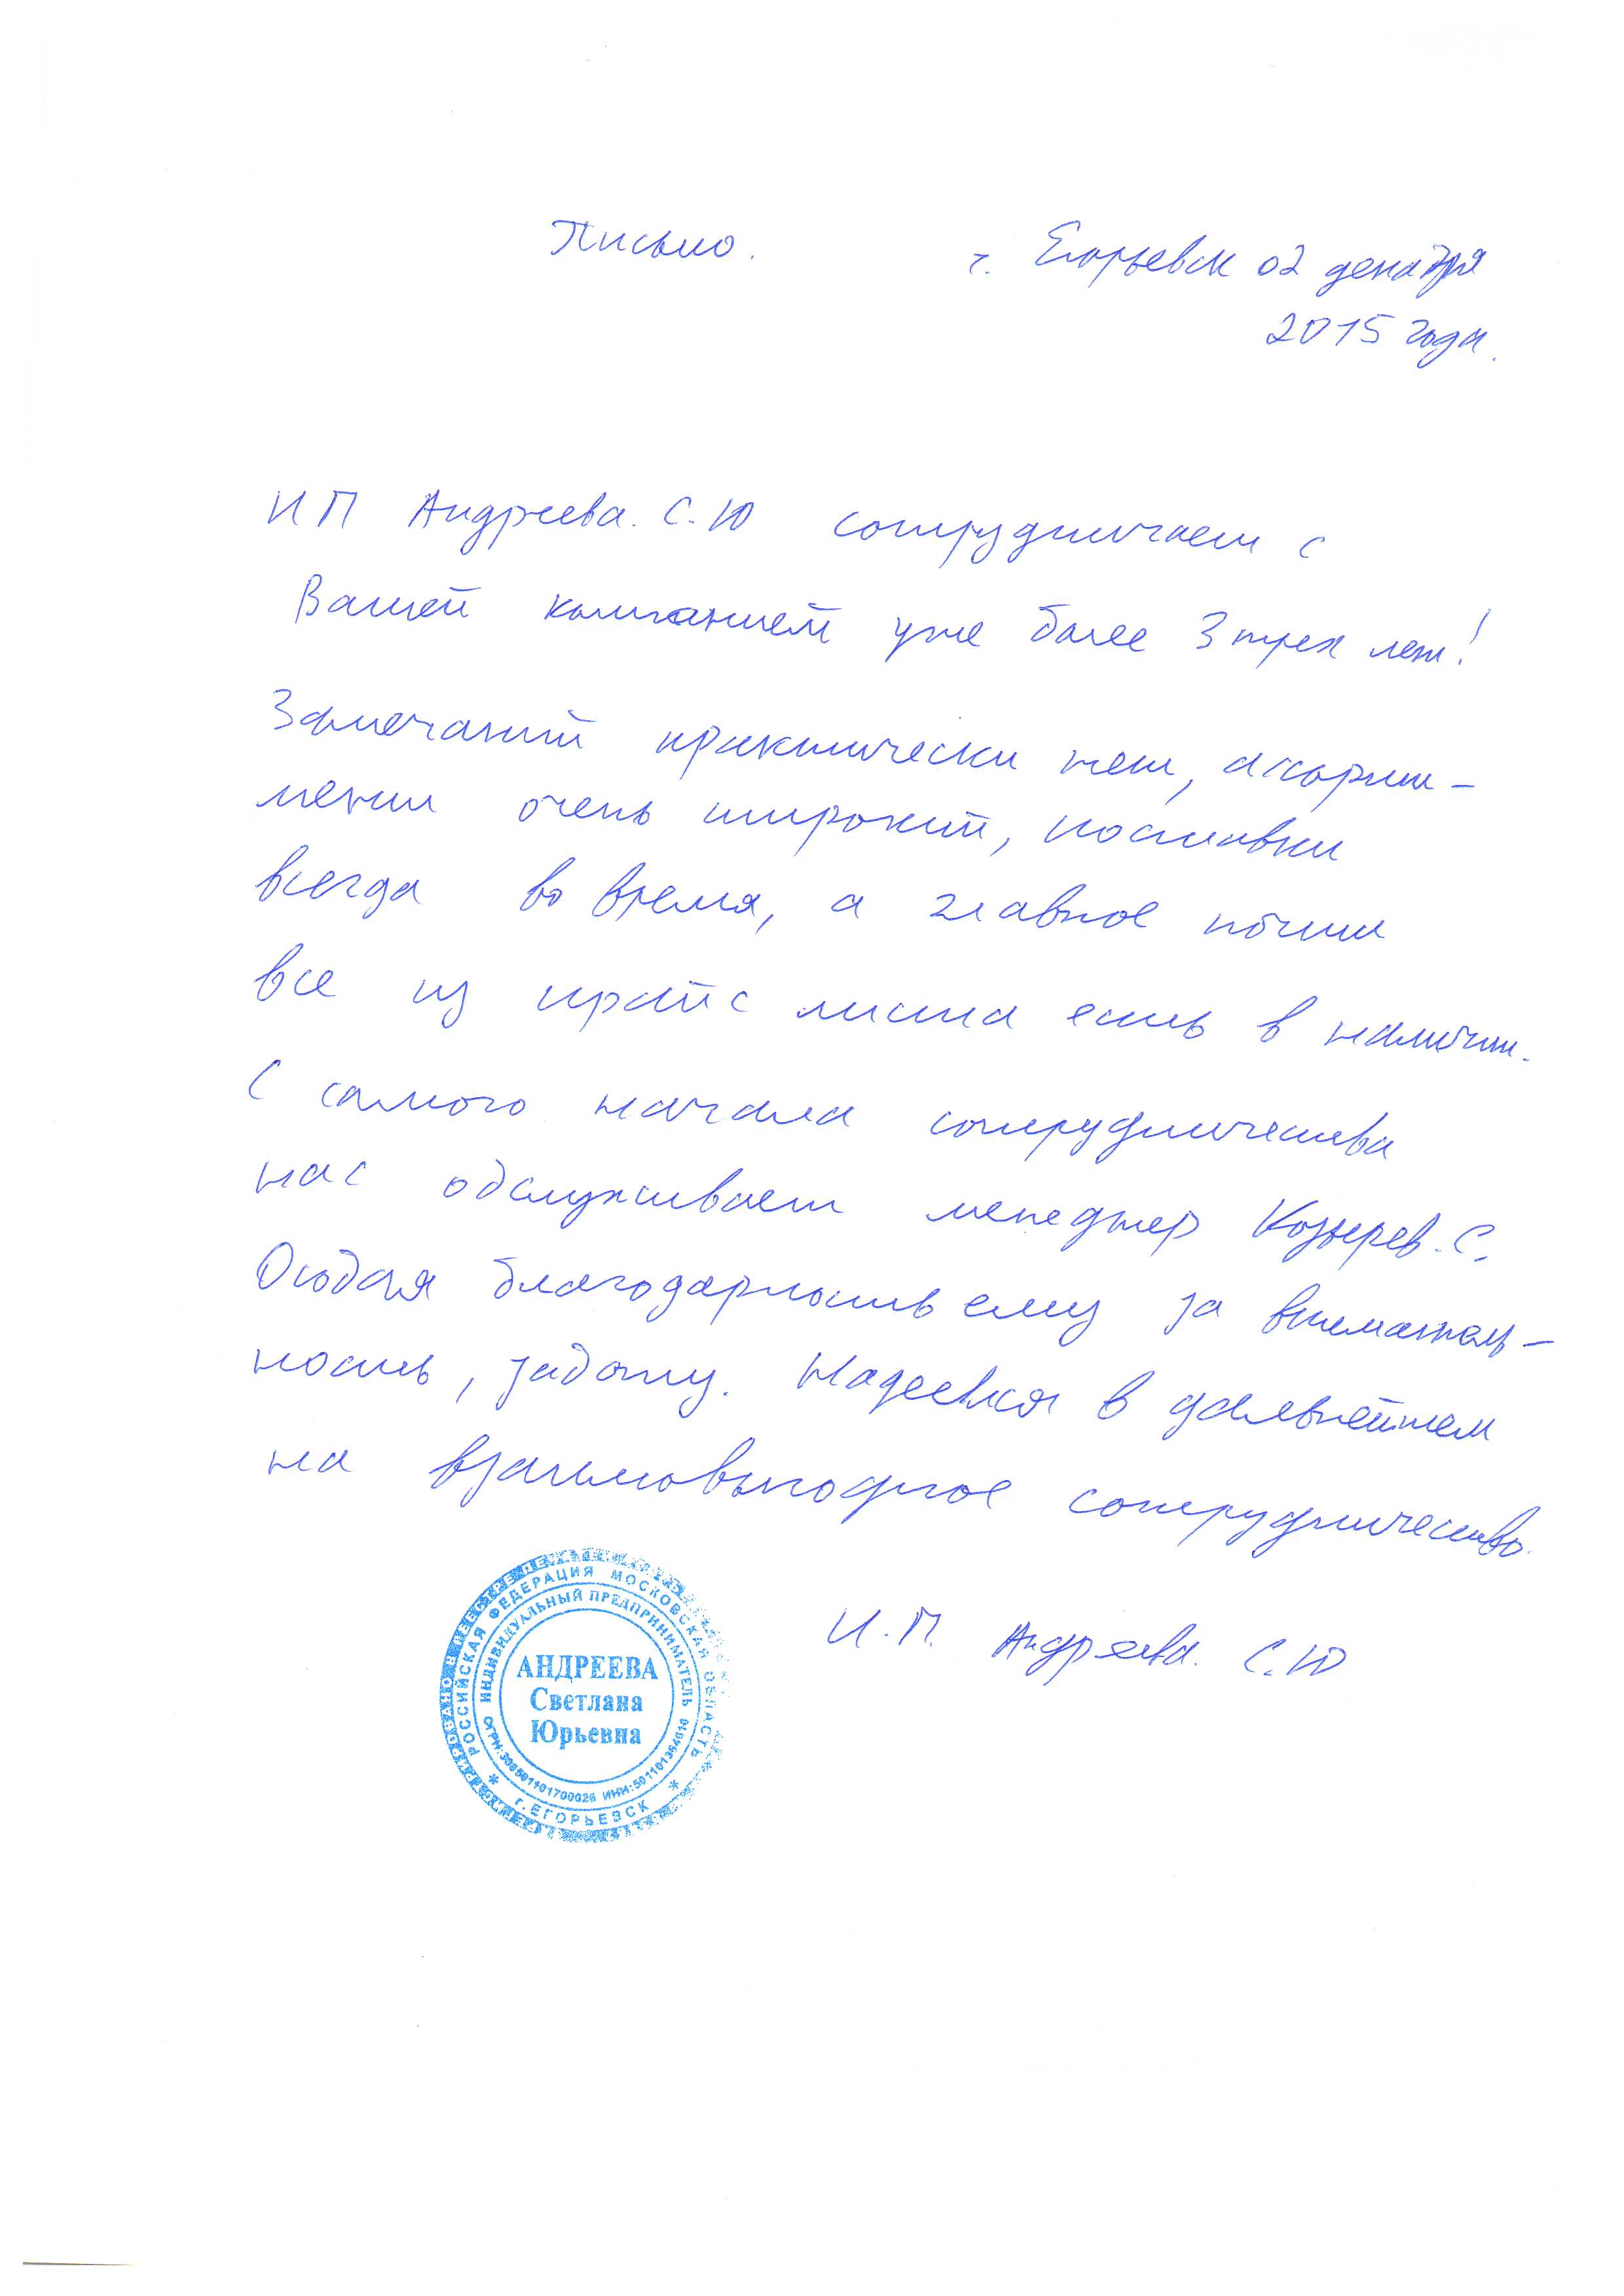 Письмо.
г. Егорьевск 02 декабря
2015 года.
ИП Андреева. С.Ю сотрудничает с
Вашей компанией уже более 3 трех лет!
Замечаний практически нет, ассорти-
мент очень широкий, поставки
всегда во время, а главное почти
все из прайс листа есть в наличии.
С самого начала сотрудничества
нас обслуживает менеджер Козырев. С.
Особая благодарность ему за вниматель-
ность, заботу. Надеемся в дальнейшем
на взаимовыгодное сотрудничество.
И.П. Андреева. С.Ю
РОССИЙСКАЯ ФЕДЕРАЦИЯ МОСКОВСКАЯ ОБЛАСТЬ
* г.ЕГОРЬЕВСК *
ИНДИВИДУАЛЬНЫЙ ПРЕДПРИНИМАТЕЛЬ
АНДРЕЕВА
Светлана
Юрьевна